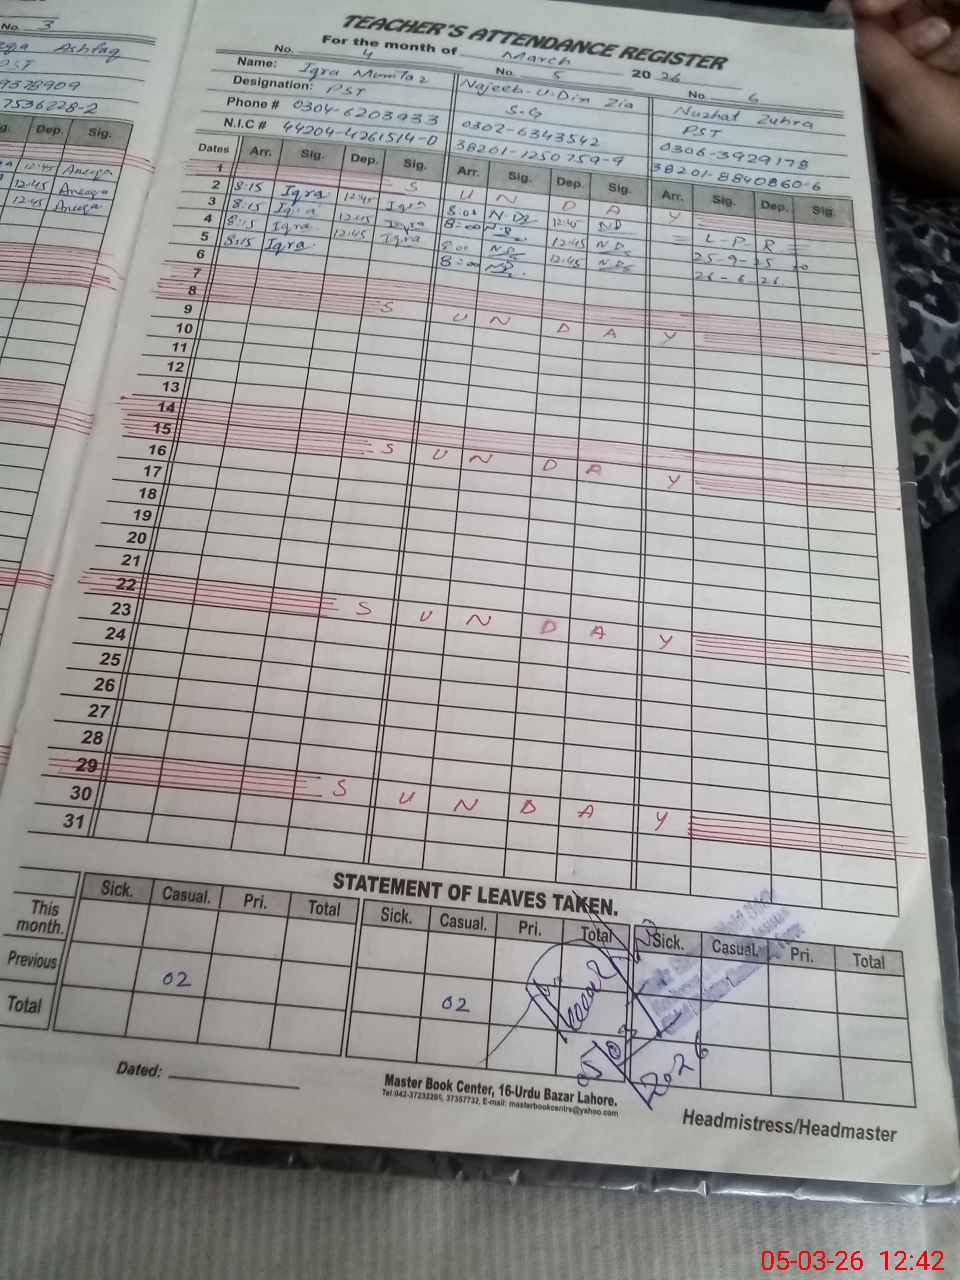 No. 3
Ashfaq
9378909
7536228-2
Dep. Sig.
12:45 Aneeqa
12:45 Aneeqa
12:45 Aneeqa
TEACHER'S ATTENDANCE REGISTER
For the month of March 2026
No. 4 No. 5 No. 6
Name: Iqra Mumtaz Najeeb-U-Din Zia Nuzhat Zuhra
Designation: PST S.G PST
Phone # 0304-6203933 0302-6343542 0306-3929178
N.I.C # 44204-4261514-0 38201-1250759-9 38201-8840860-6
Dates Arr. Sig. Dep. Sig. Arr. Sig. Dep. Sig. Arr. Sig. Dep. Sig.
1 S U N D A Y
2 8:15 Iqra 12:45 Iqra 8:00 12:45 = L-P-R =
3 8:15 Iqra 12:45 Iqra 8:00 12:45 25-9-25 to
4 8:15 Iqra 12:45 Iqra 8:00 12:45 26-6-26
5 8:15 Iqra 8:00 12:45
6
7
8 S U N D A Y
9
10
11
12
13
14
15 S U N D A Y
16
17
18
19
20
21
22 S U N D A Y
23
24
25
26
27
28
29 S U N D A Y
30
31
STATEMENT OF LEAVES TAKEN.
Sick. Casual. Pri. Total Sick. Casual. Pri. Total Sick. Casual. Pri. Total
This month.
Previous 02 02
Total
05/03/2026
Dated:
Master Book Center, 16-Urdu Bazar Lahore.
Tel:042-37232285, 37357732, E-mail: masterbookcentre@yahoo.com
Headmistress/Headmaster
05-03-26 12:42